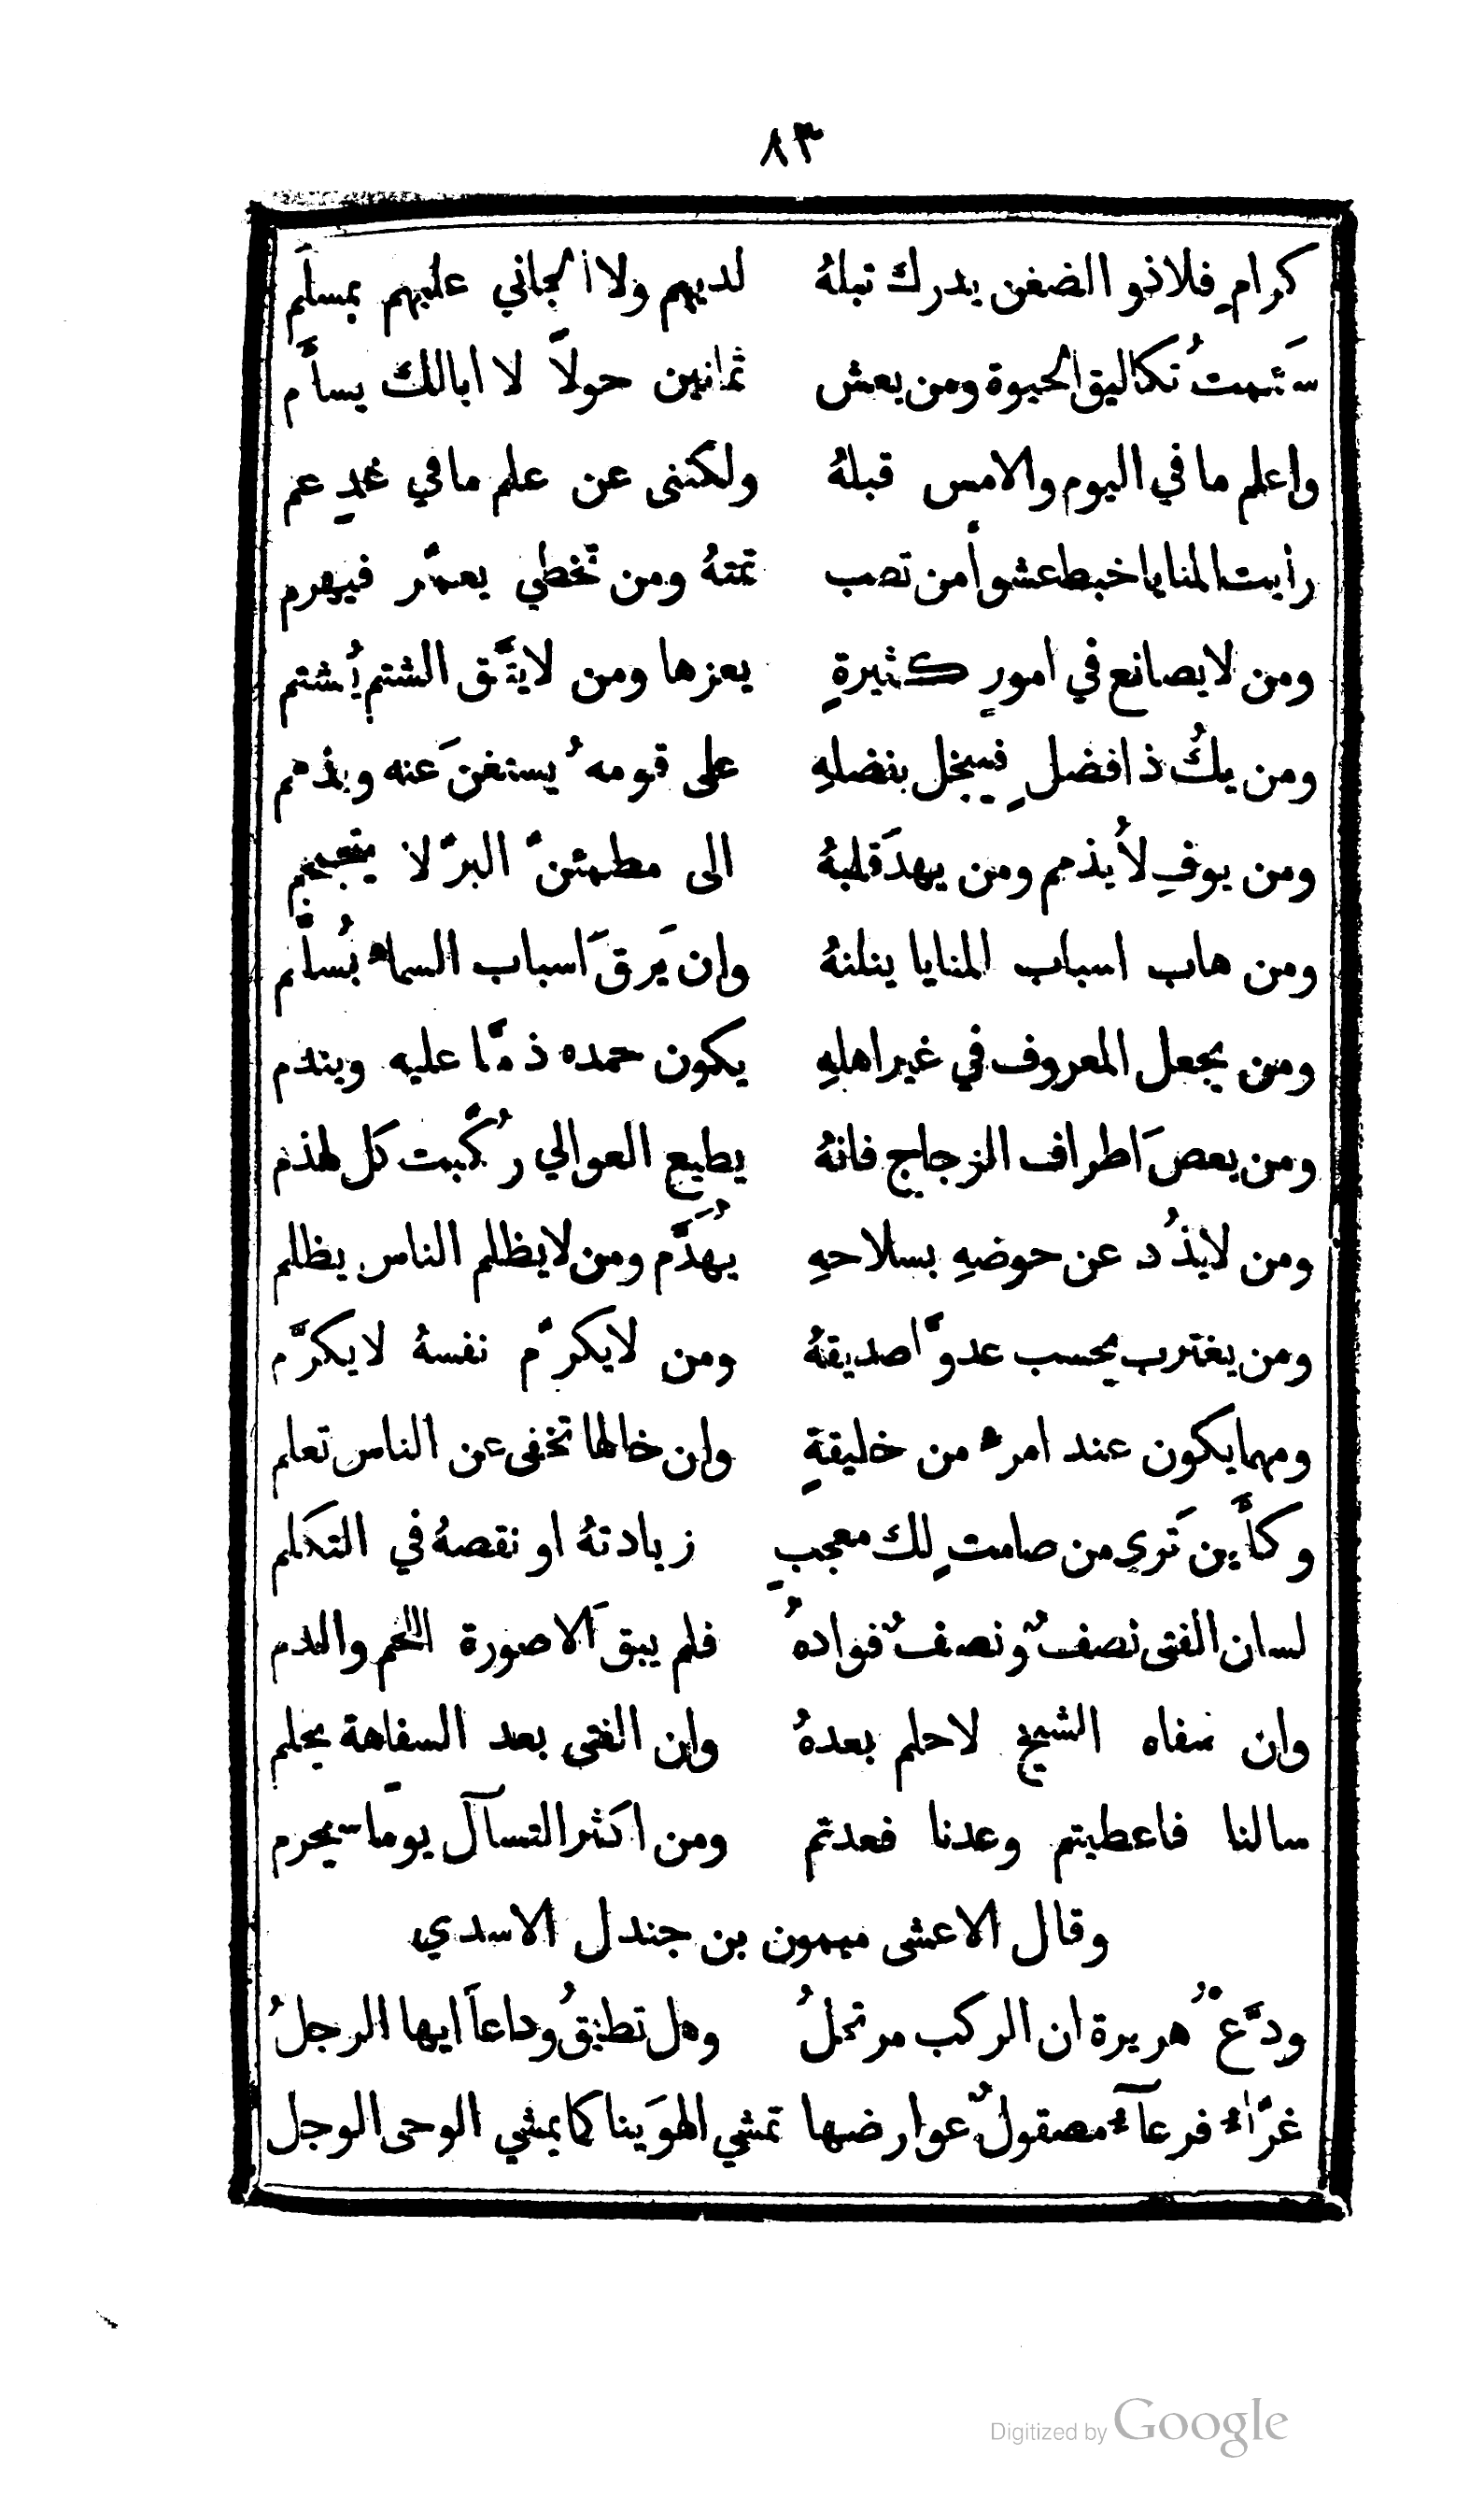 ٨٣
كرامٍ فلا ذو الضغن يدرك تبلهُ لديهم ولا الجاني عليهم بمسلَم
سَئمتُ تكاليف الحيوة ومن يعش ثمانين حولاً لا ابالك يسأم
واعلم ما في اليوم والامس قبلهُ ولكننى عن علم ما في غدٍ عم
رأيت المنايا خبط عشوا من تصب تمتهُ ومن تخطي يعمّر فيهرم
ومن لا يصانع في امورٍ كثيرةٍ يعزها ومن لا يتَّق الشتم يُشتم
ومن يكُ ذا فضلٍ فيبخل بفضلهِ على قومهُ يستغنَ عنه ويذمم
ومن يوفِ لا يُذمم ومن يهدَ قلبهُ الى مطمئنّ البرّ لا يتجمجم
ومن هاب اسباب المنايا ينلنهُ وان يَرقَ اسباب السماء بُسلَّم
ومن يجعل المعروف في غير اهلهِ يكون حمده ذمّا عليه ويندم
ومن يعصَ اطراف الزجاج فانهُ يطيع العوالي رُكّبت كل لهذم
ومن لا يذُد عن حوضهِ بسلاحهِ يُهَدَّم ومن لا يظلم الناس يظلم
ومن يغترب يحسب عدوّا صديقهُ ومن لا يكرّم نفسهُ لا يكرَّم
ومهما يكون عند امرء من خليقةٍ وان خالها تخفى عن الناس تعلم
وكأَين تَرى من صامتٍ لك معجبٍ زيادتهُ او نقصهُ في التكلم
لسان الفتى نصفٌ ونصفٌ فوادهُ فلم يبق الا صورة اللحم والدم
وان سفاه الشيخ لا حلم بعدهُ وان الفتى بعد السفاهة يحلم
سالنا فاعطيتم وعدنا فعدتم ومن اكثر التسآل يوماً سيحرم
وقال الاعشى ميمون بن جندل الاسدي
ودّع هُريرة ان الركب مرتحلُ وهل تطيقُ وداعاً ايها الرجلُ
غرّاء فرعآء مصقولٌ عوارضها تمشي الهوَينا كما يمشي الوحى الوجل
Digitized by Google